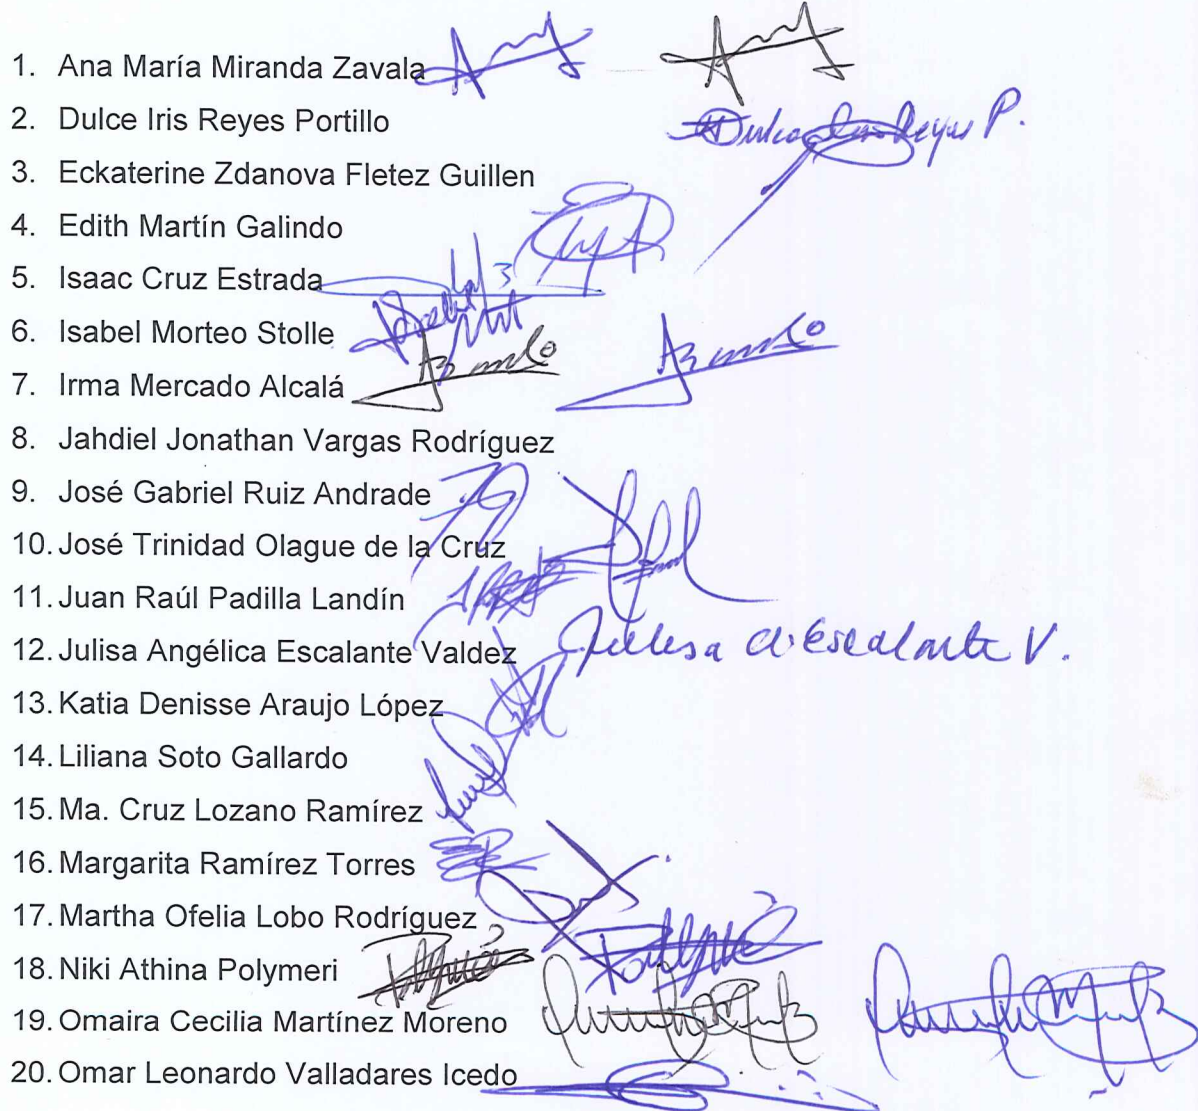 1. Ana María Miranda Zavala
2. Dulce Iris Reyes Portillo Dulce Iris Reyes P.
3. Eckaterine Zdanova Fletez Guillen
4. Edith Martín Galindo
5. Isaac Cruz Estrada
6. Isabel Morteo Stolle
7. Irma Mercado Alcalá
8. Jahdiel Jonathan Vargas Rodríguez
9. José Gabriel Ruiz Andrade
10. José Trinidad Olague de la Cruz
11. Juan Raúl Padilla Landín
12. Julisa Angélica Escalante Valdez Julisa A. Escalante V.
13. Katia Denisse Araujo López
14. Liliana Soto Gallardo
15. Ma. Cruz Lozano Ramírez
16. Margarita Ramírez Torres
17. Martha Ofelia Lobo Rodríguez
18. Niki Athina Polymeri
19. Omaira Cecilia Martínez Moreno
20. Omar Leonardo Valladares Icedo